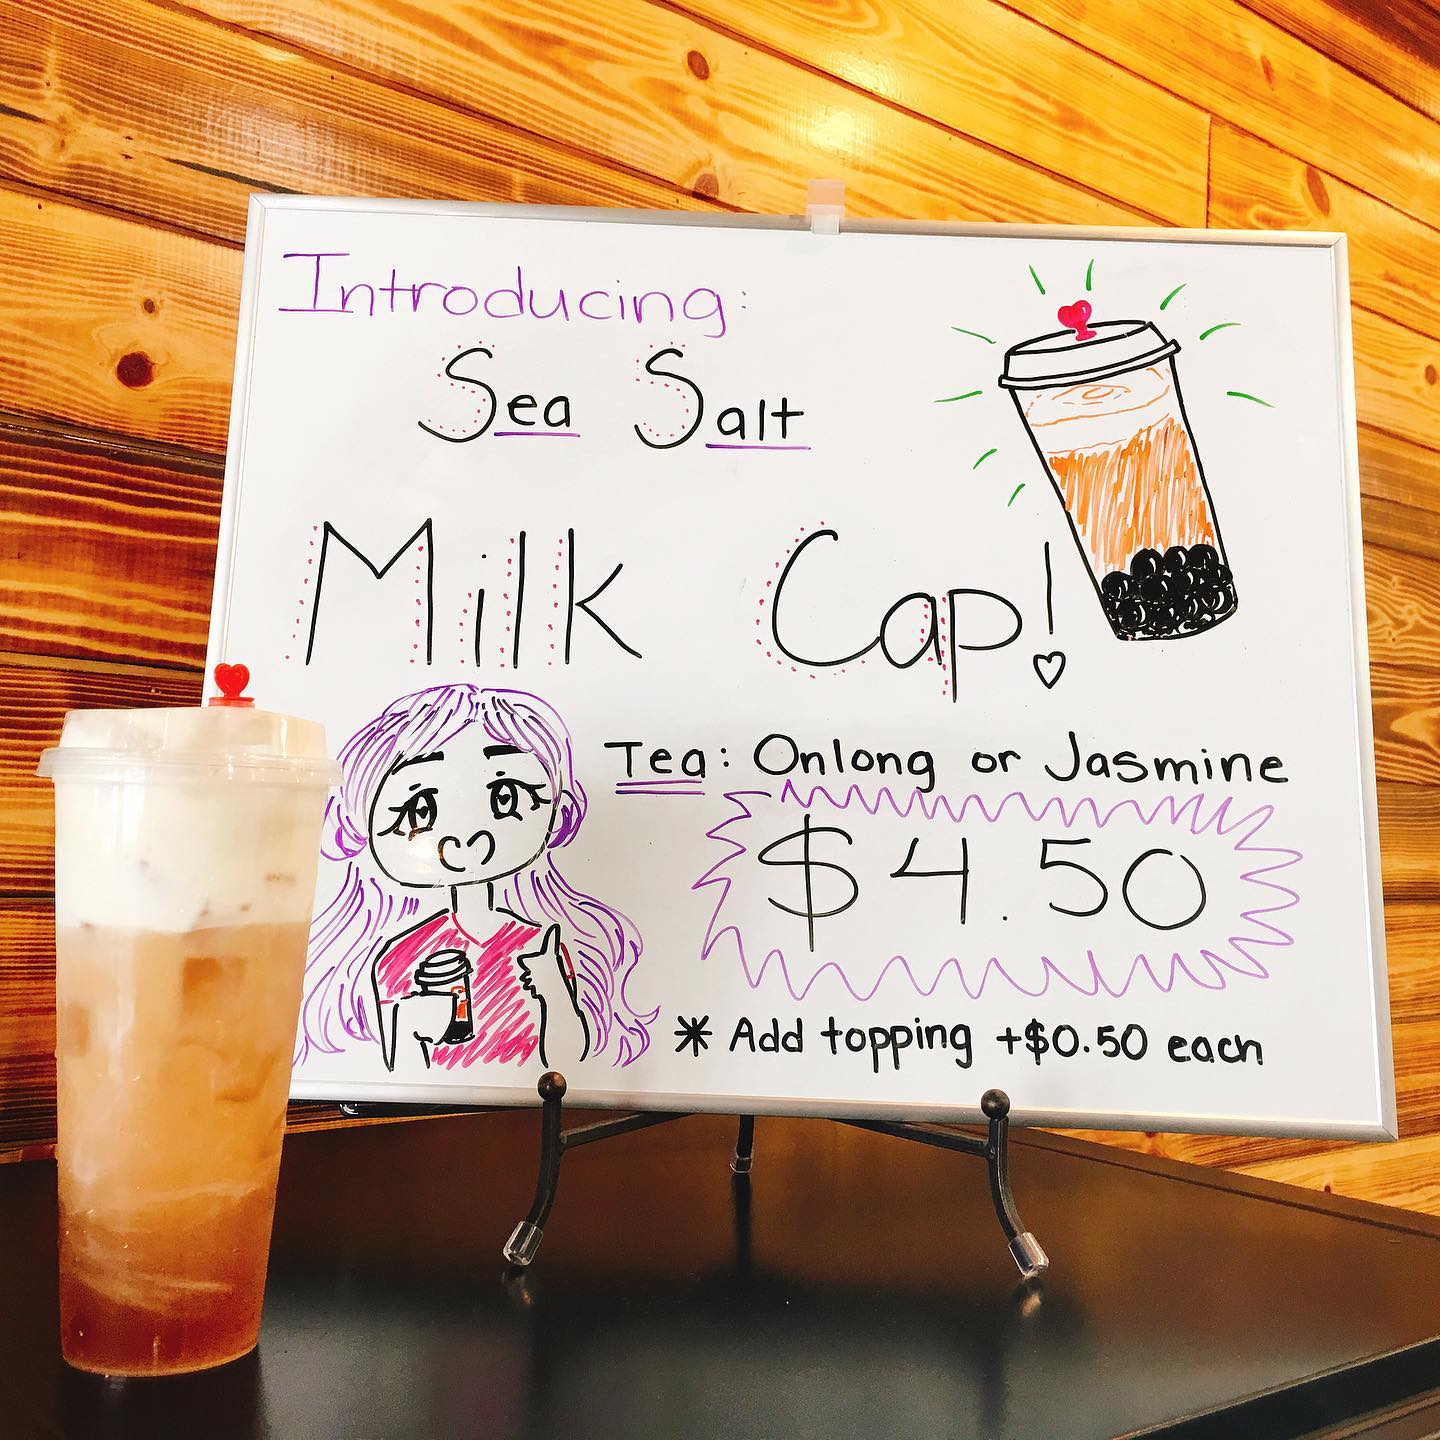 Introducing:
Sea Salt
Milk Cap!
Tea: Onlong or Jasmine
$4.50
* Add topping +$0.50 each